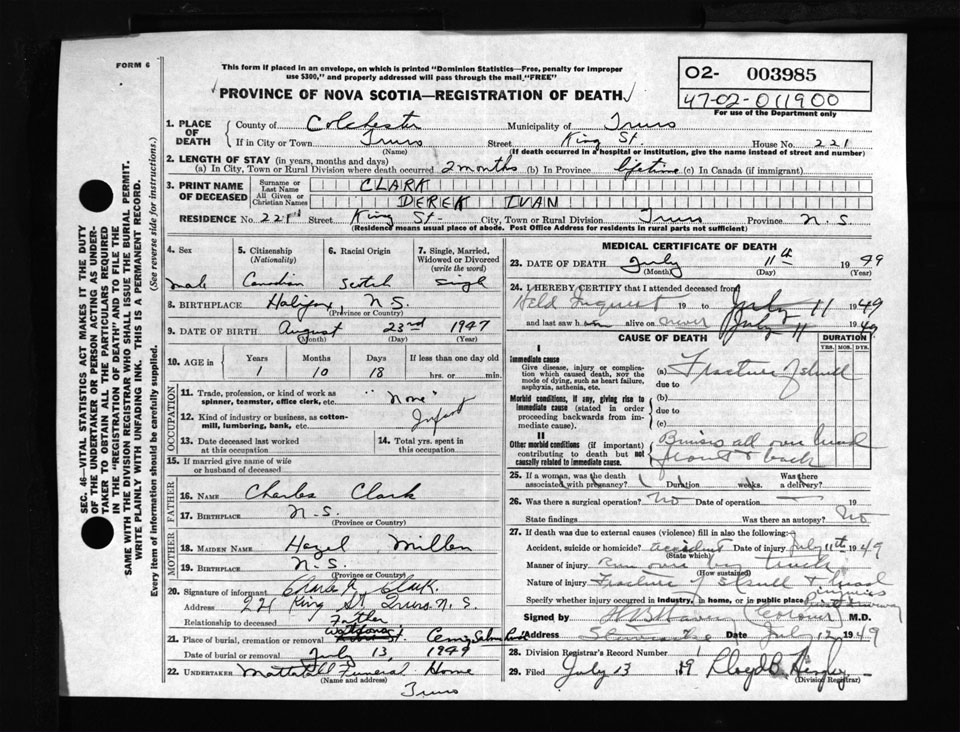 FORM 6
This form if placed in an envelope, on which is printed "Dominion Statistics—Free, penalty for improper
use $300," and properly addressed will pass through the mail "FREE"
PROVINCE OF NOVA SCOTIA—REGISTRATION OF DEATH
02- 003985
47-02-011900
For use of the Department only
SEC. 46—VITAL STATISTICS ACT MAKES IT THE DUTY
OF THE UNDERTAKER OR PERSON ACTING AS UNDER-
TAKER TO OBTAIN ALL THE PARTICULARS REQUIRED
IN THE "REGISTRATION OF DEATH" AND TO FILE THE
SAME WITH THE DIVISION REGISTRAR WHO SHALL ISSUE THE BURIAL PERMIT.
WRITE PLAINLY WITH UNFADING INK. THIS IS A PERMANENT RECORD.
Every item of information should be carefully supplied. (See reverse side for instructions.)
1. PLACE OF DEATH County of Colchester Municipality of Truro
If in City or Town Truro Street King St. House No. 221
(Name) (If death occurred in a hospital or institution, give the name instead of street and number)
2. LENGTH OF STAY (in years, months and days)
(a) In City, Town or Rural Division where death occurred 2 months (b) In Province lifetime (c) In Canada (if immigrant)
3. PRINT NAME OF DECEASED Surname or Last Name CLARK
All Given or Christian Names DEREK IVAN
RESIDENCE No. 221 Street King St City, Town or Rural Division Truro Province N.S
(Residence means usual place of abode. Post Office Address for residents in rural parts not sufficient)
4. Sex male
5. Citizenship (Nationality) Canadian
6. Racial Origin Scotch
7. Single, Married, Widowed or Divorced (write the word) Single
8. BIRTHPLACE Halifax, N.S.
(Province or Country)
9. DATE OF BIRTH August 23rd 1947
(Month) (Day) (Year)
10. AGE in Years 1 Months 10 Days 18 If less than one day old hrs. or min.
OCCUPATION
11. Trade, profession, or kind of work as spinner, teamster, office clerk, etc. "None"
12. Kind of industry or business, as cotton-mill, lumbering, bank, etc. Infant
13. Date deceased last worked at this occupation
14. Total yrs. spent in this occupation
15. If married give name of wife or husband of deceased
FATHER
16. NAME Charles Clark
17. BIRTHPLACE N.S.
(Province or Country)
MOTHER
18. MAIDEN NAME Hazel Millen
19. BIRTHPLACE N.S.
(Province or Country)
20. Signature of informant Clark.
Address 221 King St Truro N.S.
Relationship to deceased Father
21. Place of burial, cremation or removal Cemy
Date of burial or removal July 13, 1949
22. UNDERTAKER Mattatall Funeral Home
(Name and address)
Truro
MEDICAL CERTIFICATE OF DEATH
23. DATE OF DEATH July 11th 1949
(Month) (Day) (Year)
24. I HEREBY CERTIFY that I attended deceased from
Held Inquest 19 to July 11 1949
and last saw h alive on never July 11 1949
CAUSE OF DEATH
DURATION
YRS. MOS. DYS.
I
Immediate cause
Give disease, injury or complication which caused death, not the mode of dying, such as heart failure, asphyxia, asthenia, etc.
(a) Fracture of skull
due to
Morbid conditions, if any, giving rise to immediate cause (stated in order proceeding backwards from immediate cause).
(b)
due to
(c)
II
Other morbid conditions (if important) contributing to death but not causally related to immediate cause.
Bruises all over head
front & back
25. If a woman, was the death associated with pregnancy? Duration weeks. Was there a delivery?
26. Was there a surgical operation? No Date of operation 19
State findings Was there an autopsy? No
27. If death was due to external causes (violence) fill in also the following:
Accident, suicide or homicide? accident Date of injury July 11th 1949
(State which)
Manner of injury Run over by truck
(How sustained)
Nature of injury Fracture of Skull & head injuries
Specify whether injury occurred in industry, in home, or in public place
Signed by (Coroner) M.D.
Address Date July 12 1949
28. Division Registrar's Record Number
29. Filed July 13 19 Lloyd B.
(Division Registrar)